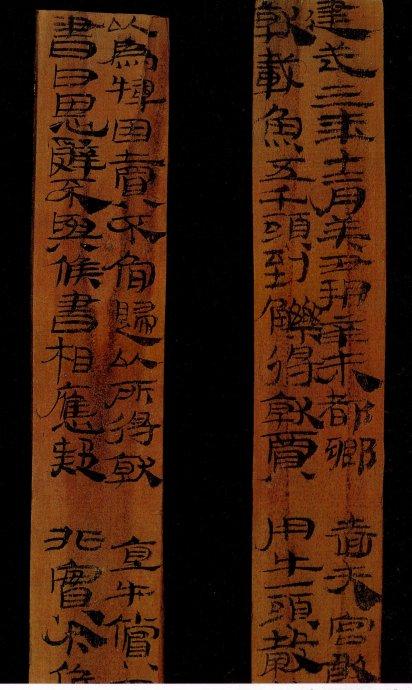 建武三年十二月癸丑朔辛未都鄉 嗇夫宮敢
就載魚五千頭到觻得就賈 用牛一頭穀
以為因賣不肯歸以所得就 直牛償
書曰恩辭不與候書相應疑 非實今候